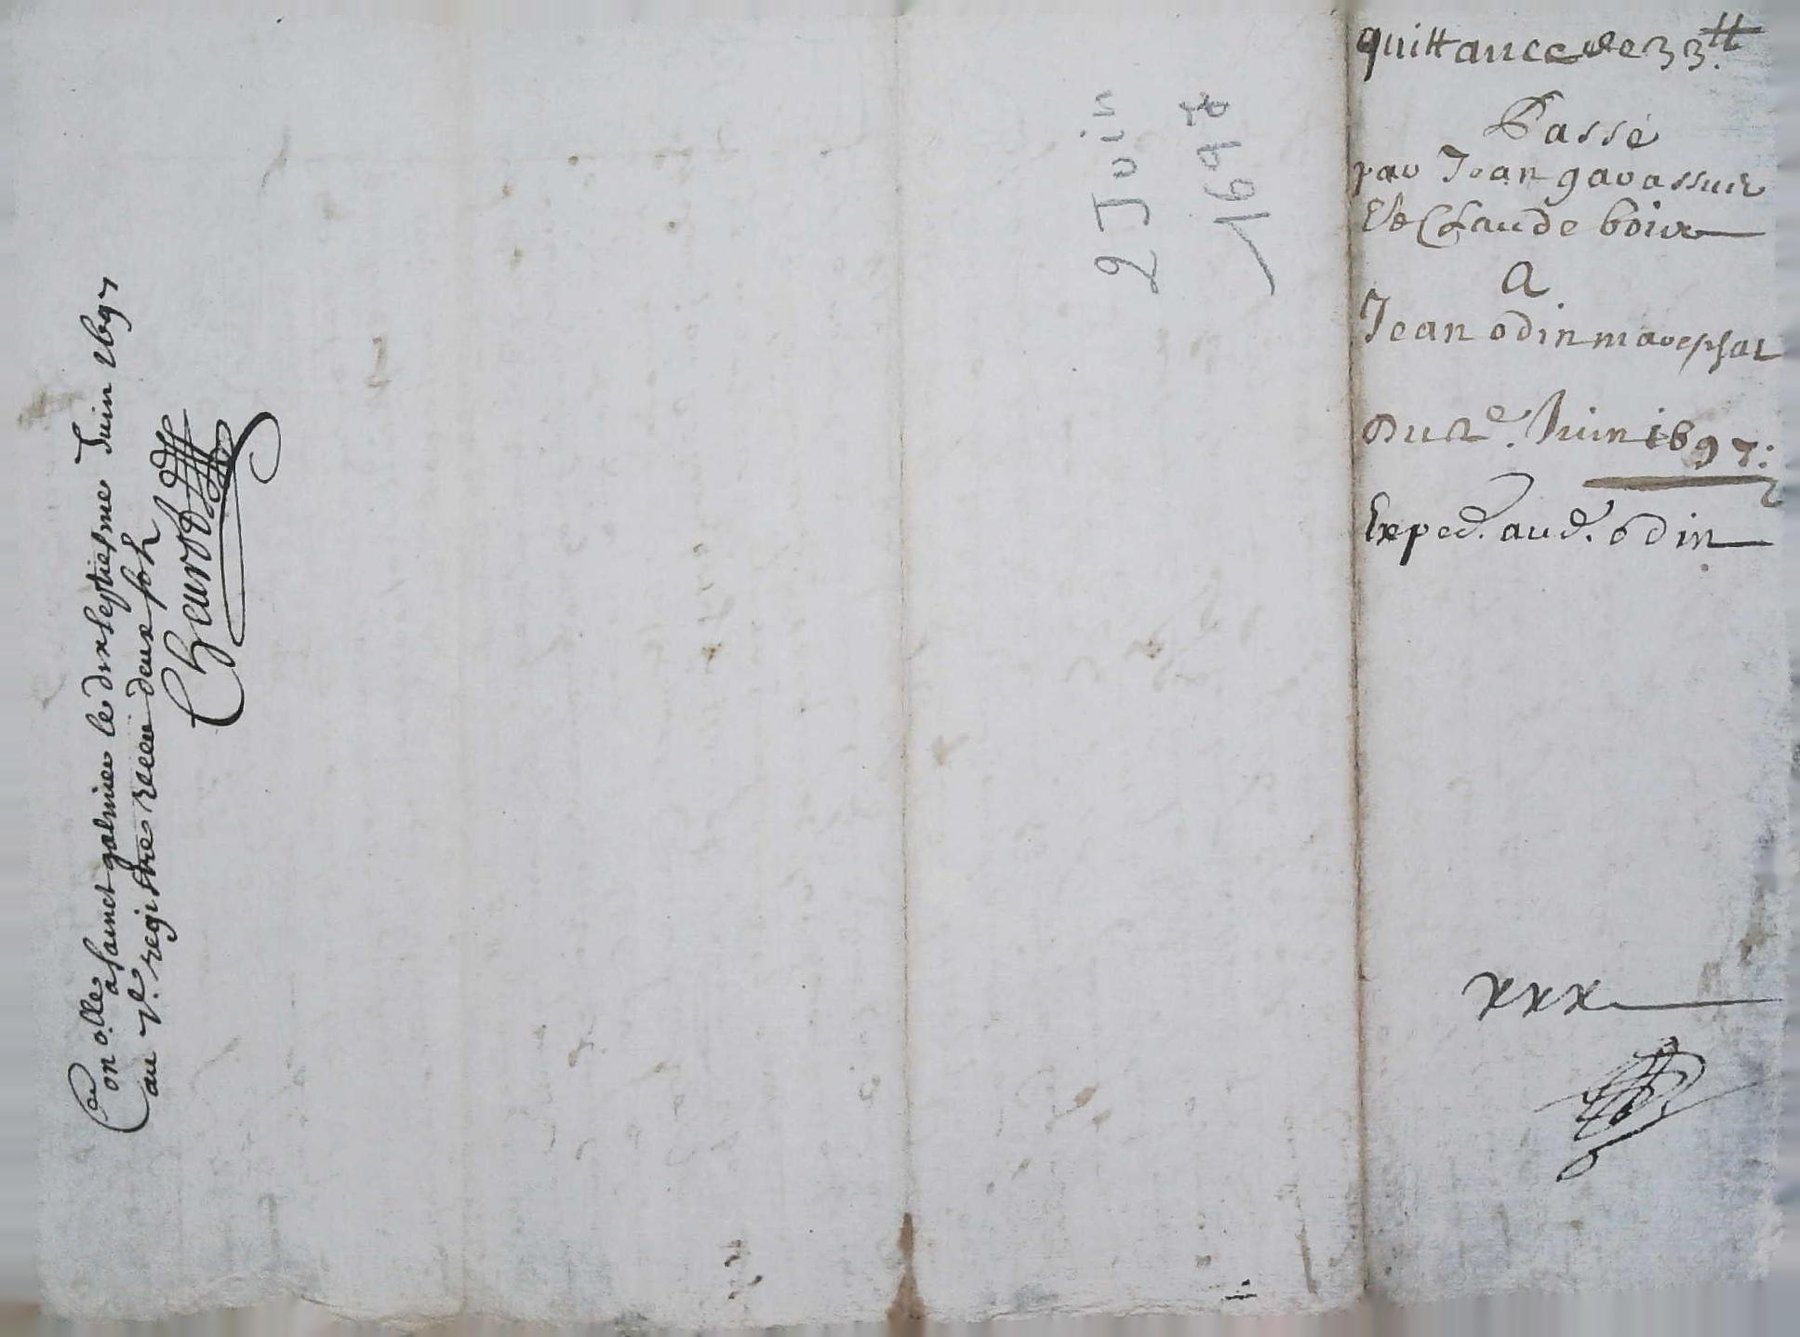 quittance de 33 ᵗᵗ.
Passé
par Jean gavassuit
Et Claude boiv
A
Jean odin mareschal
Du 2ᵉ. Juin 1697:
Exped. aud. odin
xxx
2 Juin
1697
Con olle
a sainct galmier le dixseptiesme Juin 1697
au Vᵉ. registre receu deux solz
Cheurot